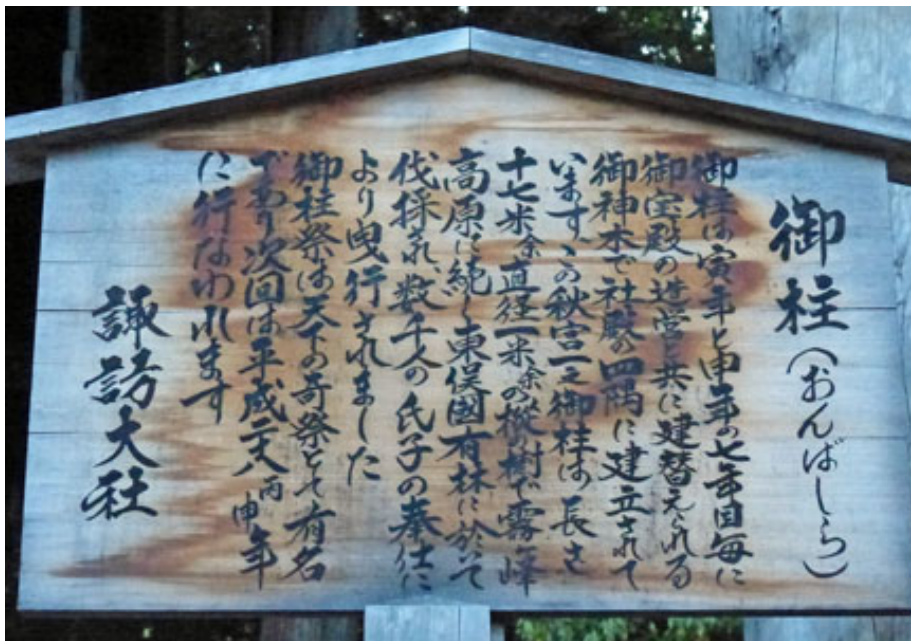 御柱(おんばしら)
御柱は寅年と申年の七年目毎に
御宝殿の造営と共に建替えられる
御神木で社殿の四隅に建立されて
います、この秋宮一之御柱は長さ
十七米余直径一米余の樅の樹で霧ヶ峰
高原に続く東俣國有林に於いて
伐採され、数千人の氏子の奉仕に
より曳行されました
御柱祭は天下の奇祭として有名
であり次回は平成二八丙申年
に行なわれます
諏訪大社